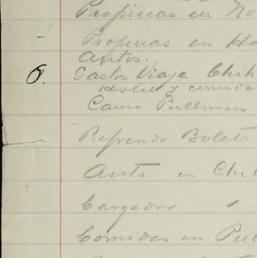 Propinas en Ho
Propinas en Ho
Autos.
6. Gastos Viaje Chih
Hotel y comida
Cama Pullman
Refrendo Boleto
Auto en Chih
Cargador
Comidas en Pul